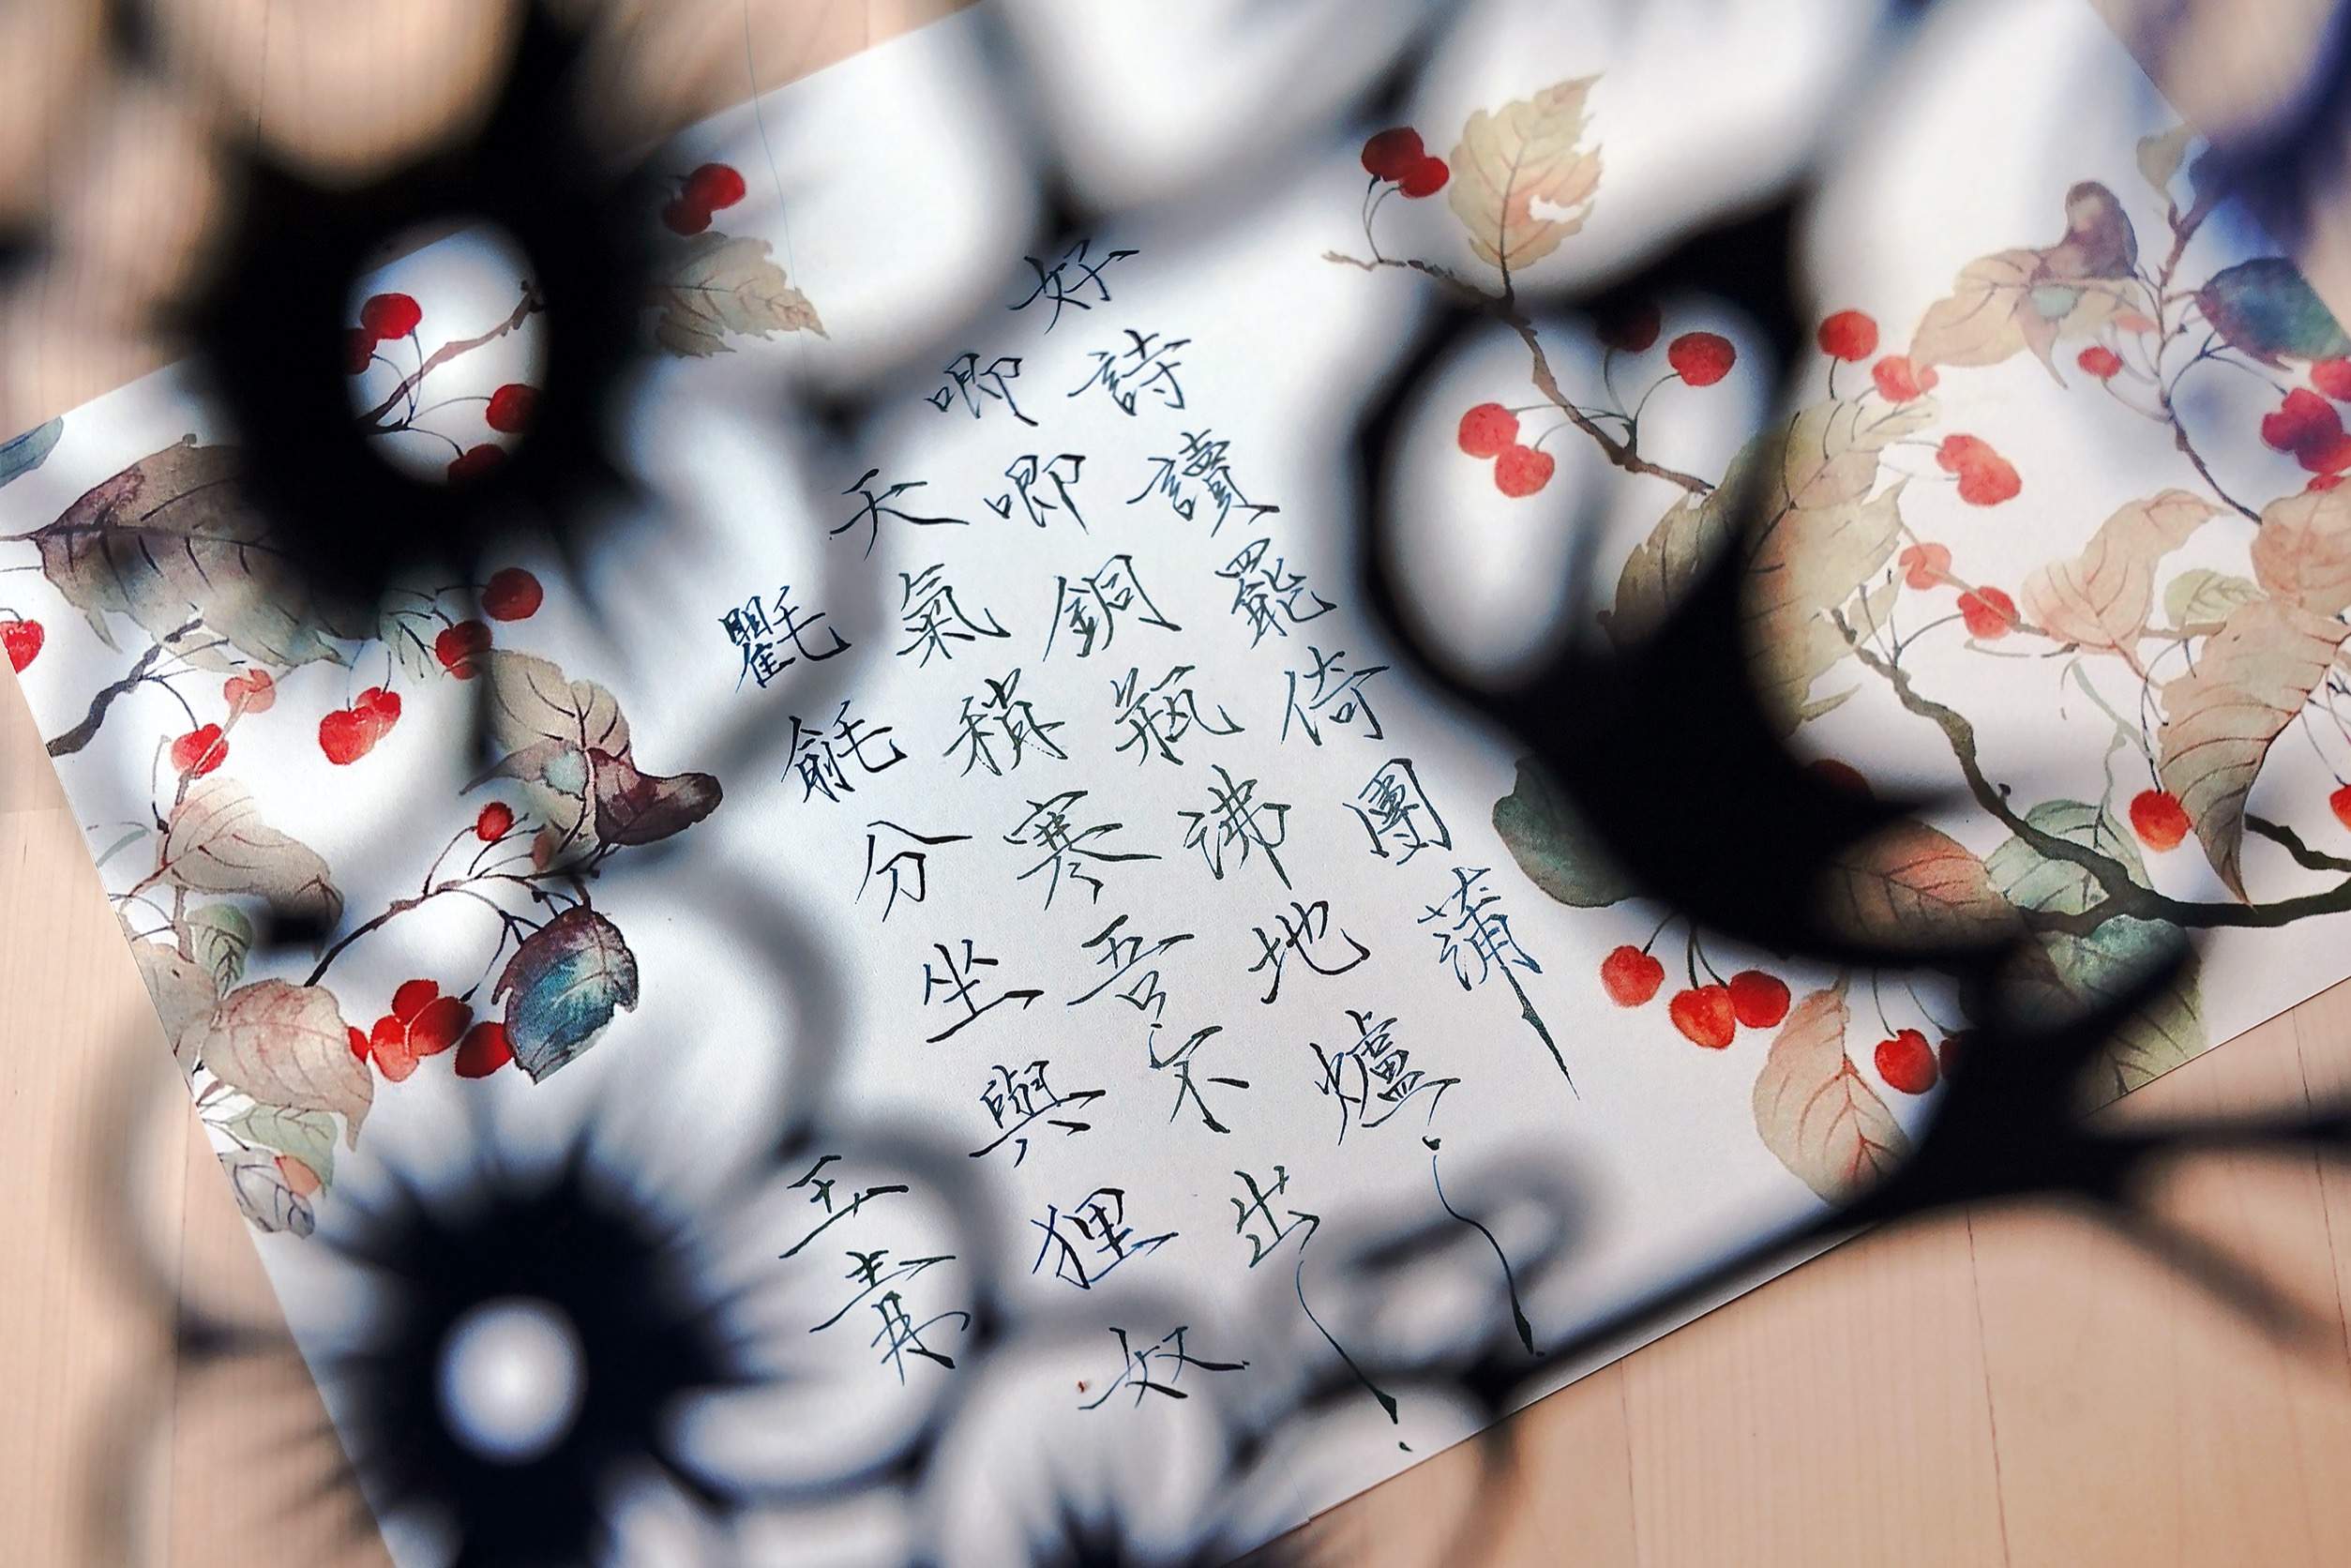 好詩讀罷倚團蒲
唧唧銅瓶沸地爐
天氣稍寒吾不出
氍毹分坐與狸奴